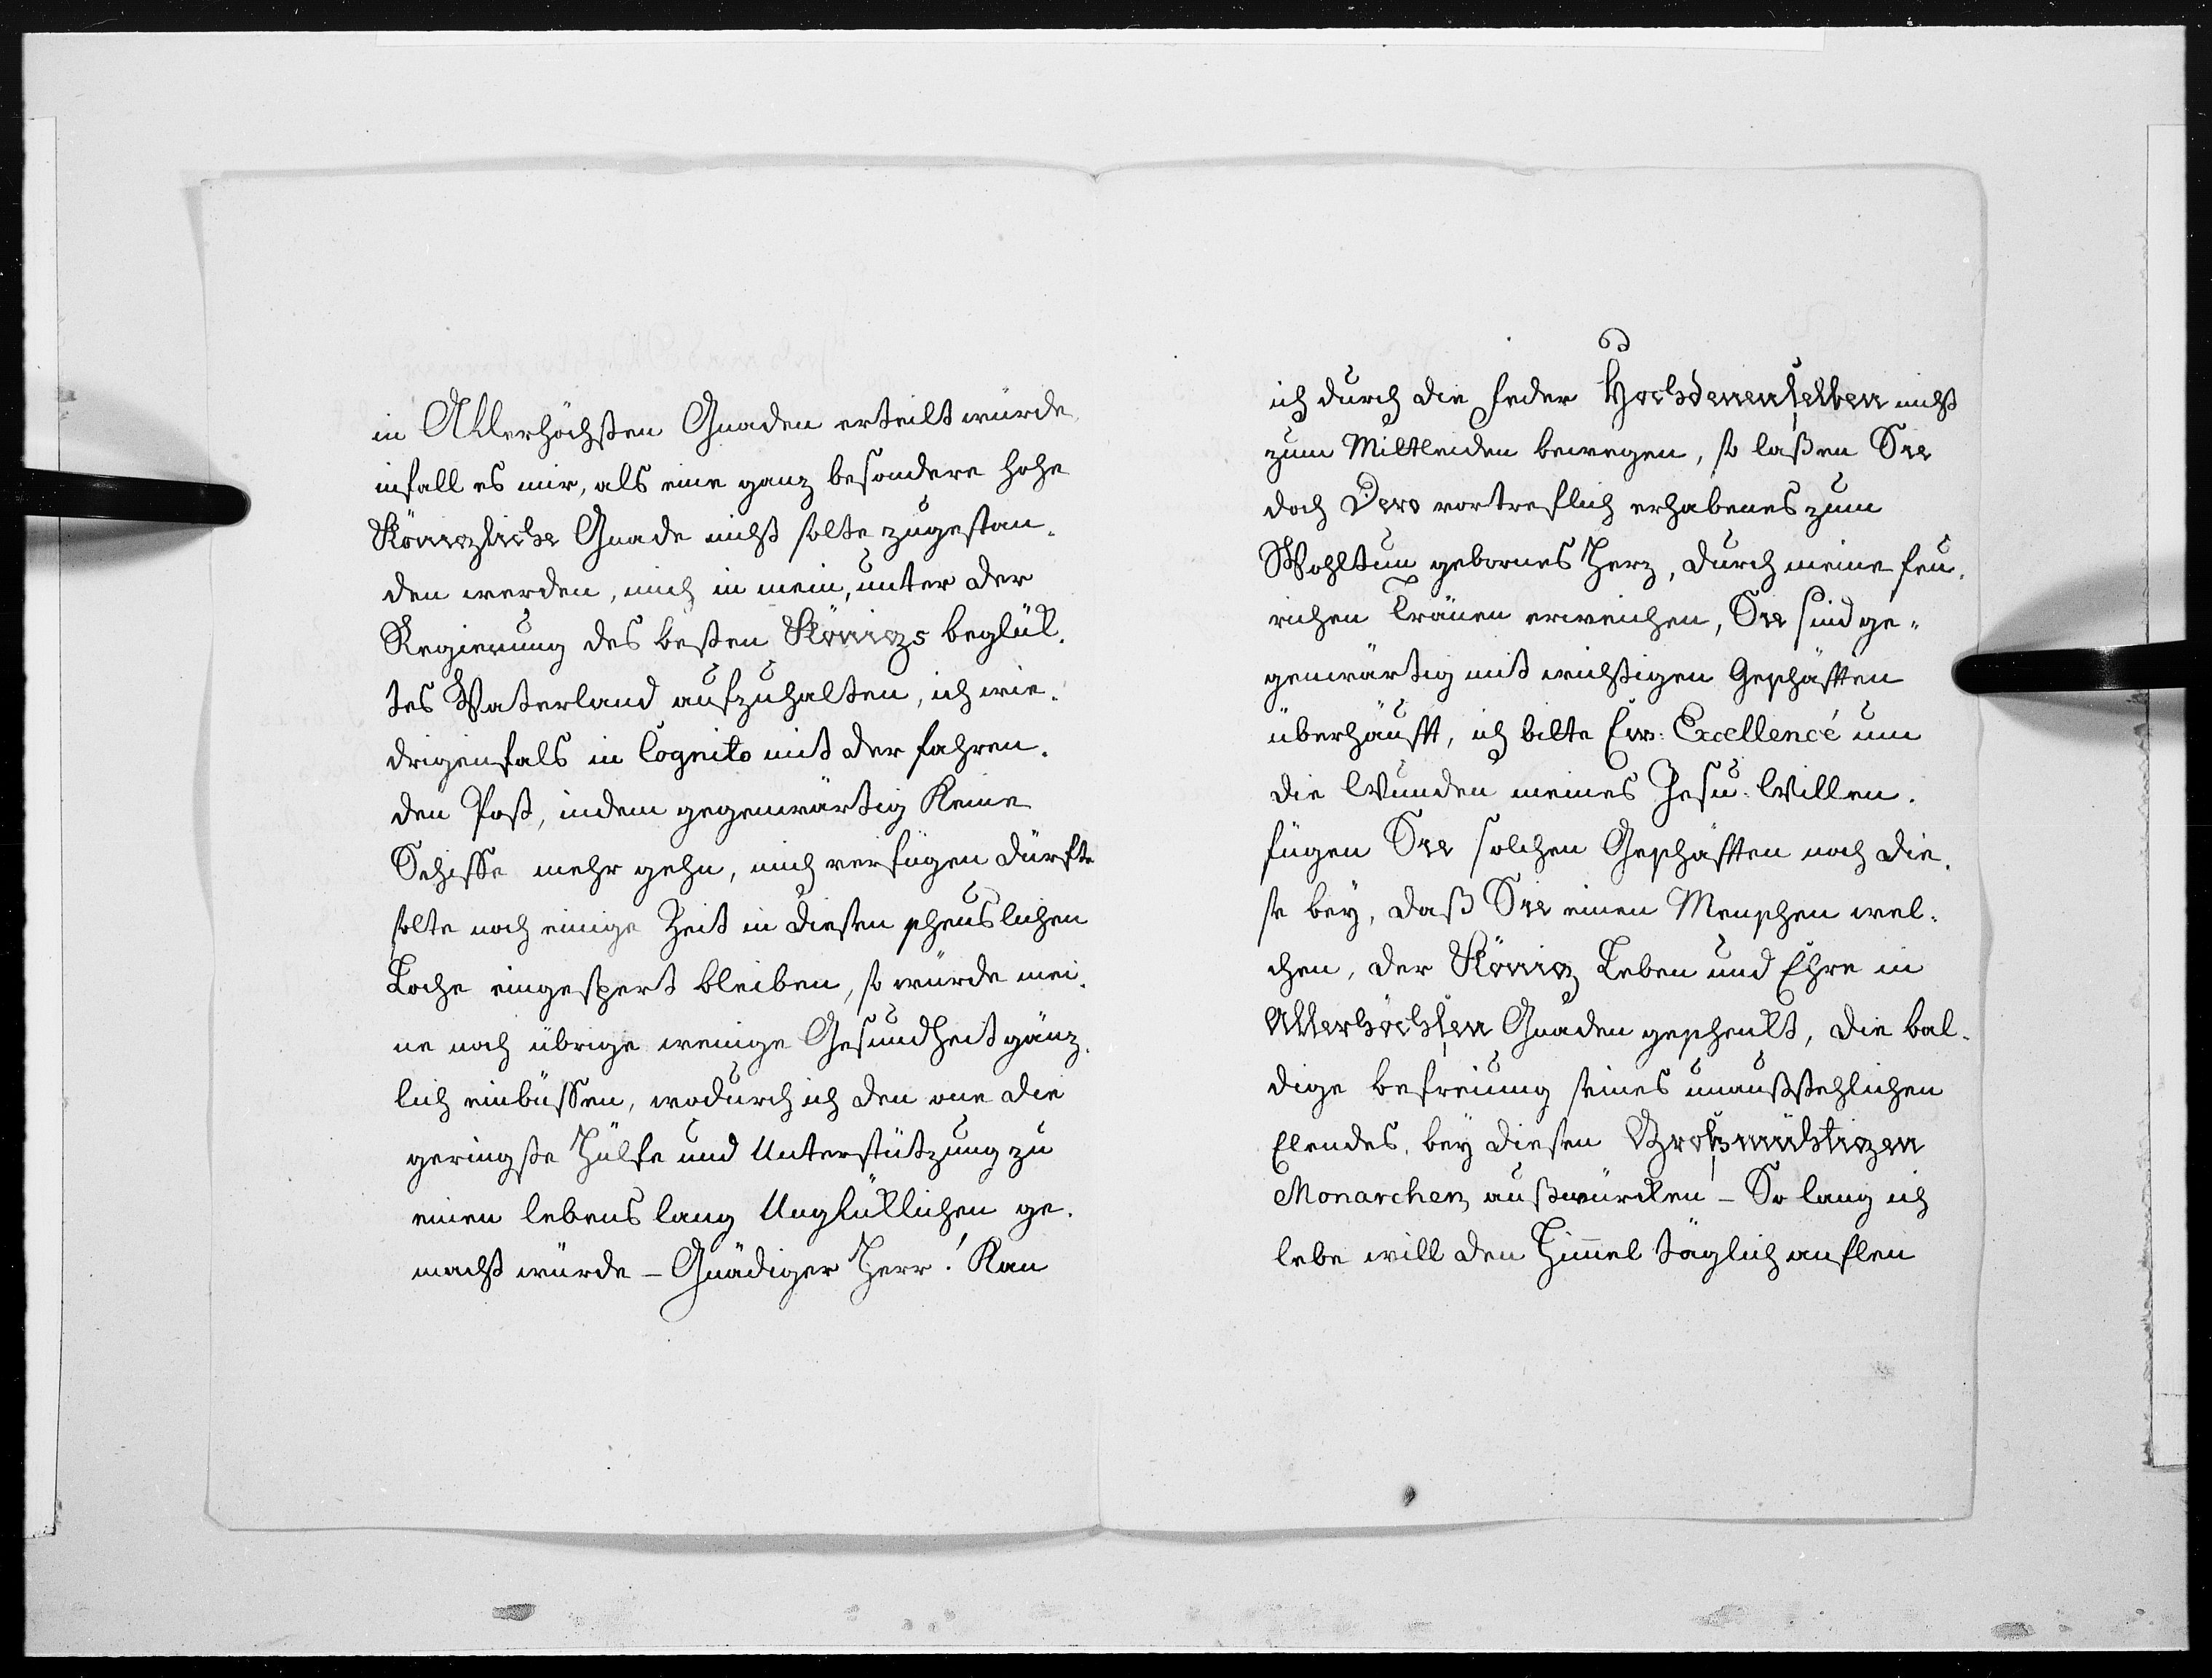 in Allerhöchsten Gnaden erteilt würde
infall es mir, als eine ganz besondere hohe
Königliche Gnade nicht solte zugestan-
den werden, mich in mein, unter der
Regierung des besten Königs beglük-
tes Vaterland aufzuhalten, ich wie-
drigenfals in Cognito mit der fahren-
den Post, indem gegenwärtig Keine
Schiffe mehr gehn, mich verfügen dürfte
solte noch einige Zeit in diesen scheuslichen
Loche eingespert bleiben, so würde mei-
ne noch übrige wenige Gesundheit gänz-
lich einbüssen, wodurch ich den one die
geringste Hülfe und Unterstützung zu
einen lebens lang Unglüklichen ge-
macht würde – Gnädiger Herr! Kan
ich durch die Feder Hochdenenselben nicht
zum Mittleiden bewegen, so laßen Sie
doch Dero vortreflich erhabenes zum
Wohltun gebornes Herz, durch meine feu-
richen Tränen erweichen, Sie sind ge-
genwärtig mit wichtigen Geschäfften
überhäufft, ich bitte Ew: Excellencé um
die Wunden meines Jesu Willen.
fügen Sie solchen Geschäfften noch die-
se bey, daß Sie einen Menschen wel-
chen, der König Leben und Ehre in
Allerhöchsten Gnaden geschenkt, die bal-
dige befreiung seines unaußstehlichen
Elendes, bey diesen Großmühtigen
Monarchen außwürcken – So lang ich
lebe will den Himmel täglich anflen